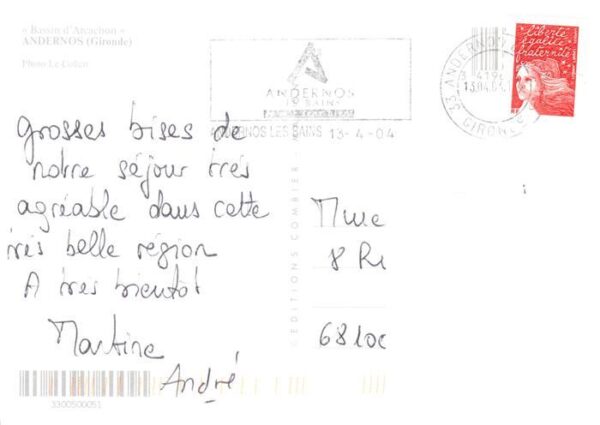 « Bassin d'Arcachon »
ANDERNOS (Gironde)
ANDERNOS
LES BAINS
ANDERNOS LES BAINS 13-4-04
33 ANDERNOS
GIRONDE
liberté
égalité
fraternité
Grosses bises de
notre séjour très
agréable dans cette
très belle région
A très bientôt
Martine
André
Mme
8 R
68100
©EDITIONS COMBIER
3300500051